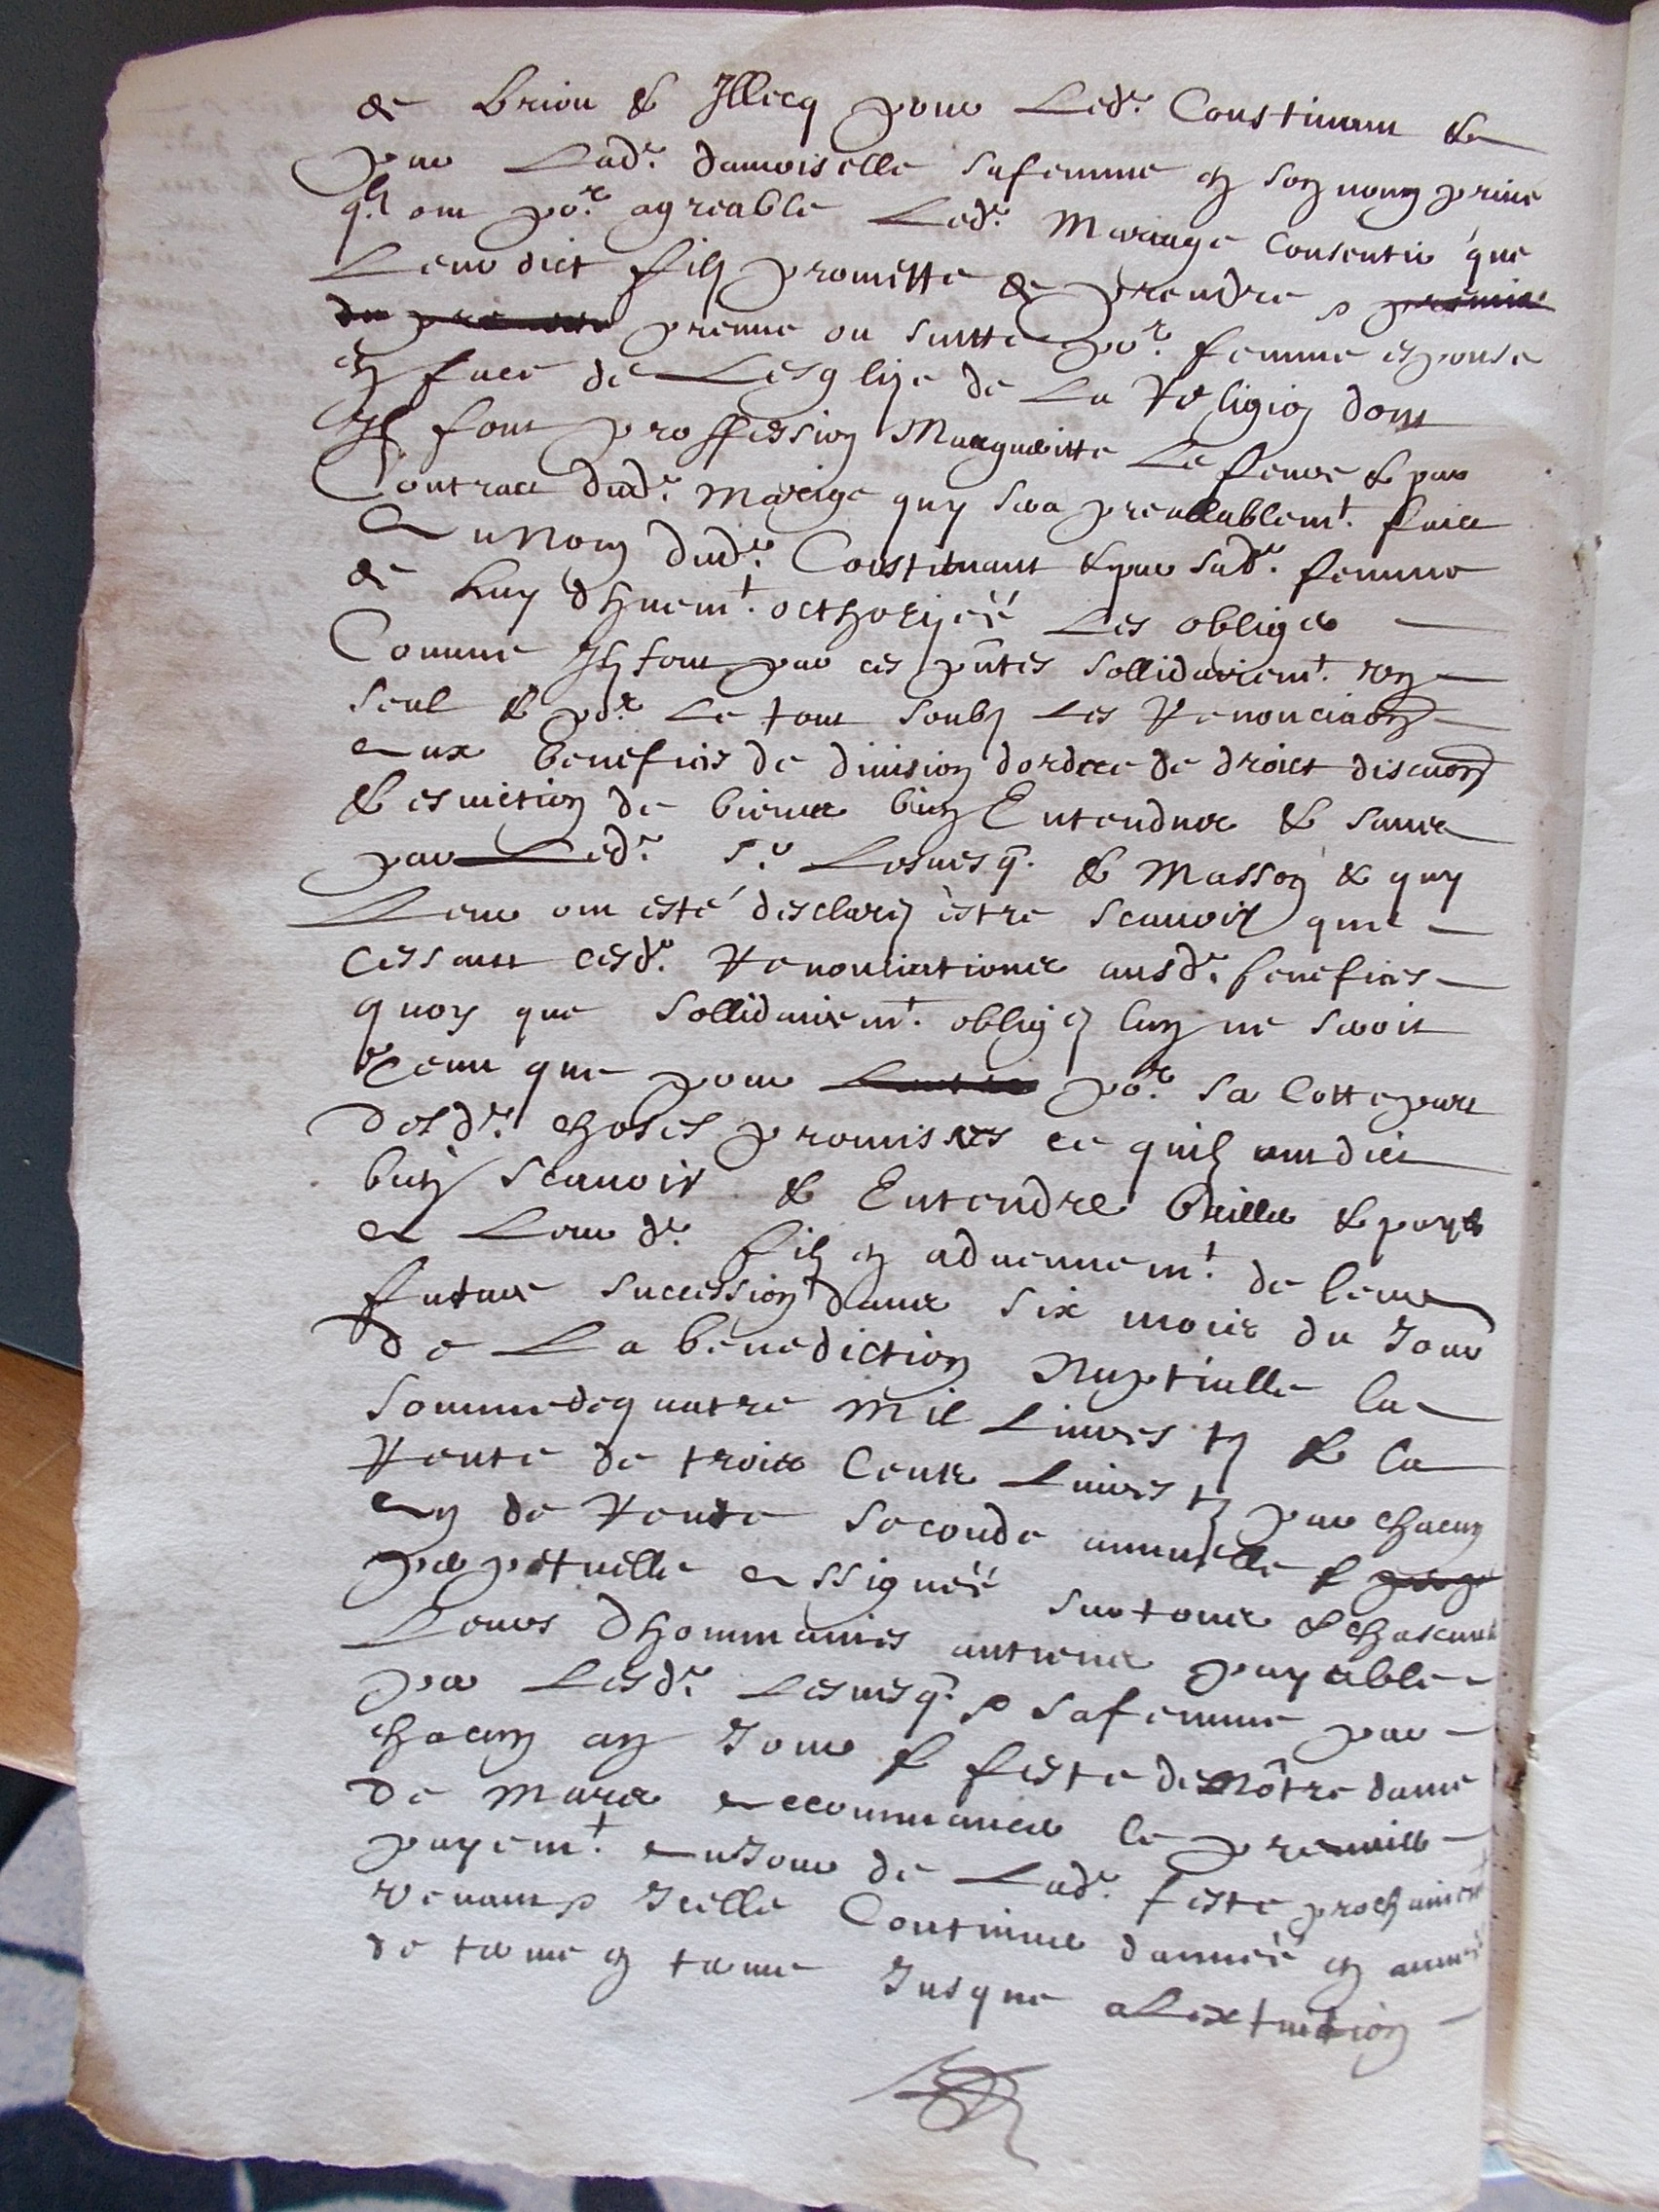 de Brion & Illecq pour Led.t Constituant &
par Lad.te damoiselle sa femme en son nom prive
q.lz ont po.r agreable Led.t Mariage consentir que
Leur dict filz promette de prendre &
prenne ou suitte po.r femme espouse
en face de Lesglize de La Religion dont
Ilz font proffession Margueritte Lefeuve & par
Contract dud.t Mariage quy sera prealablem.t faict
au Nom dud.t Constituant & par sad.te femme
de luy dhuem.t octhorizéé Les obliger
Comme Ilz font par ces pntes sollidairem.t un
seul & po.r Le tout soubz Les Renonciaons
aux benefices de division dordre de droict discuon
& esviction de biens bien Entendues & sceues
par Led.t s.r Lesuesq. & Masson & quy
Leur ont esté desclarez estre scauoir que
cessant cesd.tes Renonciations ausd.ts benefices
quoy que sollidairem.t obligez lun ne seroit
tenu que pour po.r sa Cottepart
desd.tes choses promises ce quilz ont dict
bien scauoir & Entendre bailler & payer
a Leur d.t filz en aduencem.t de leur
future succession dans six mois du Jour
de La benediction Nuptialle la
somme de quatre mil Liures tz & la
Rente de trois Cents Liures tz par chacun
an de Rente seconde annuelle &
perpetuelle assignéé sur tous & chascuns
Leurs dhommaines antiens payable
par Lesd.ts Lesuesq. & sa femme par
chacun an Jour & feste de Nôtre dame
de Mars a commancer le premier
payem.t au Jour de Lad.te feste prochainem.t
venant & Icelle Continuer dannéé en annéé
de terme en terme Jusque a Lextinction